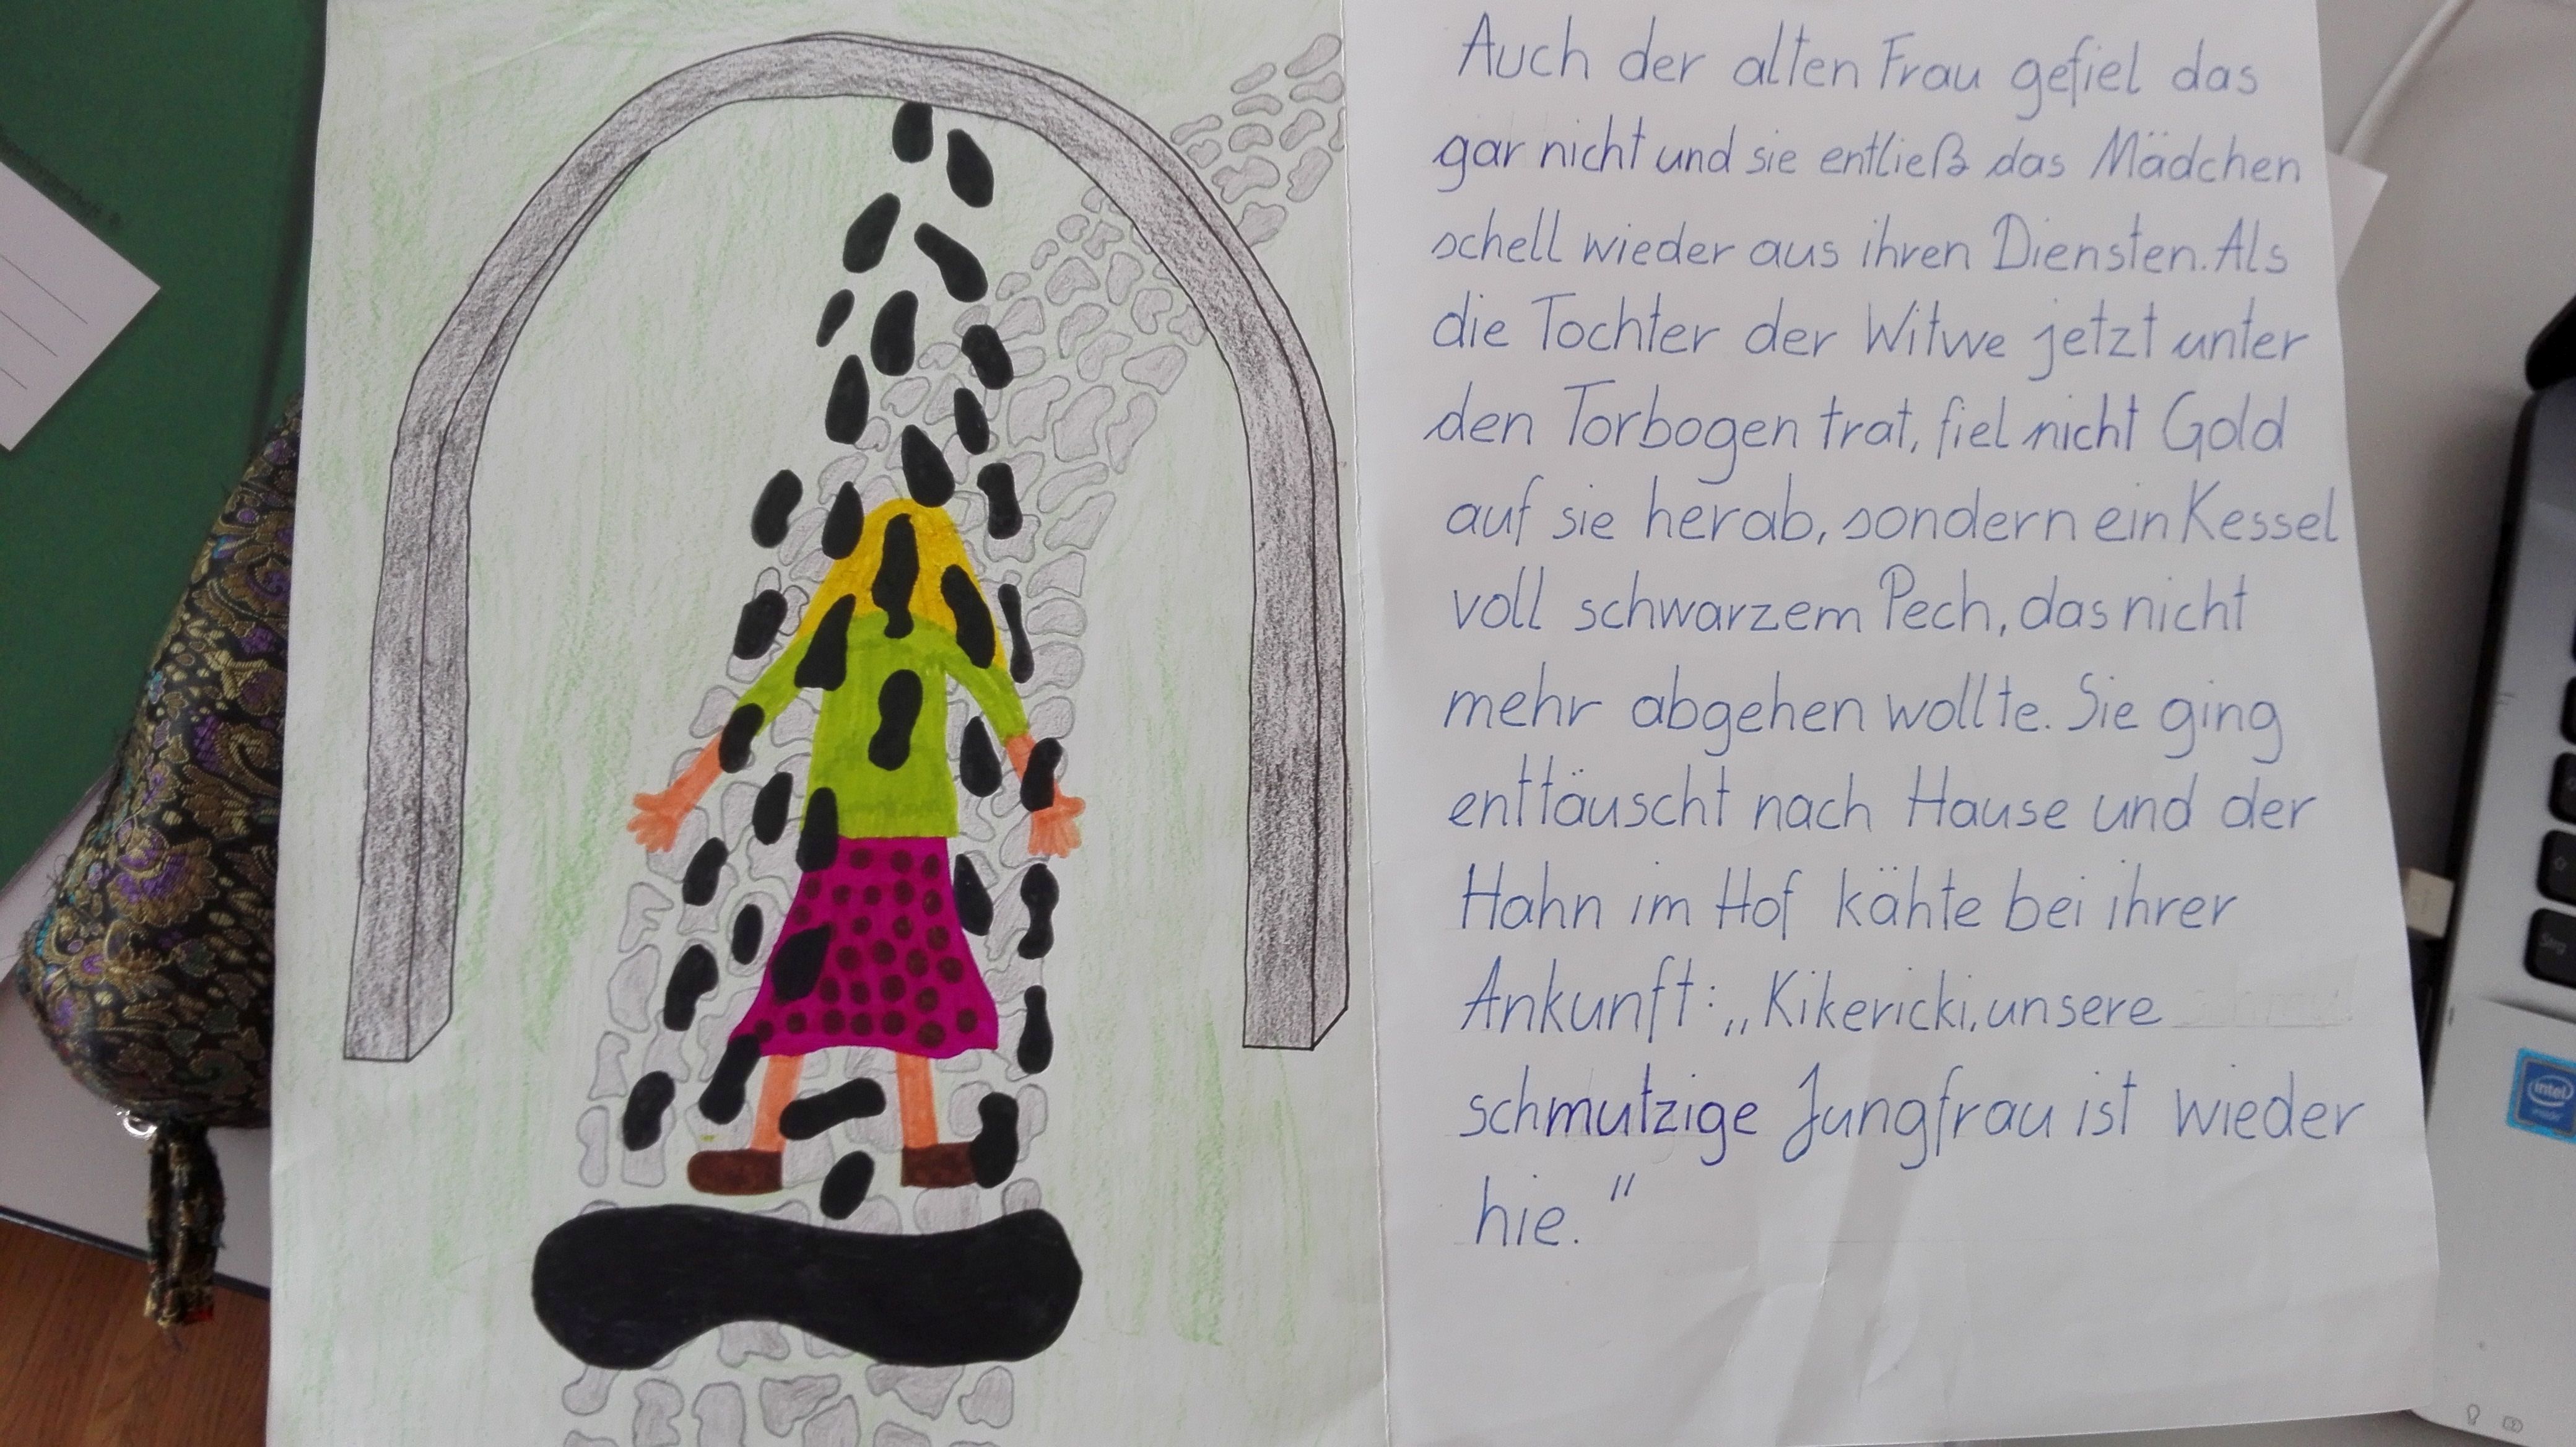 Auch der alten Frau gefiel das
gar nicht und sie entließ das Mädchen
schell wieder aus ihren Diensten. Als
die Tochter der Witwe jetzt unter
den Torbogen trat, fiel nicht Gold
auf sie herab, sondern ein Kessel
voll schwarzem Pech, das nicht
mehr abgehen wollte. Sie ging
enttäuscht nach Hause und der
Hahn im Hof kähte bei ihrer
Ankunft: „Kikericki, unsere
schmutzige Jungfrau ist wieder
hie."
intel
inside